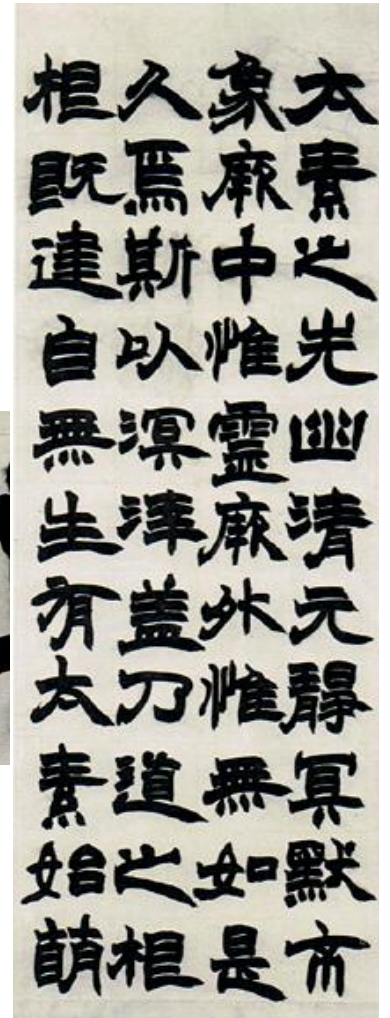 太素之先幽清元靜冥默不
象厥中惟靈厥外惟無如是
久焉斯以溟涬盖乃道之根
根既建自無生有太素始萌